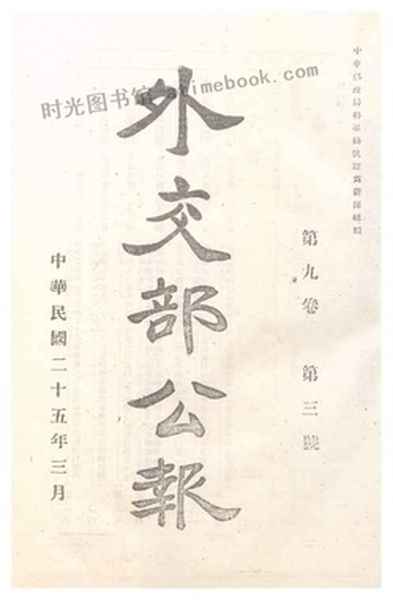 中華郵政局特准掛號認爲新聞紙類
第九卷　第三號
外交部公報
中華民國二十五年三月
时光图书馆 atimebook.com